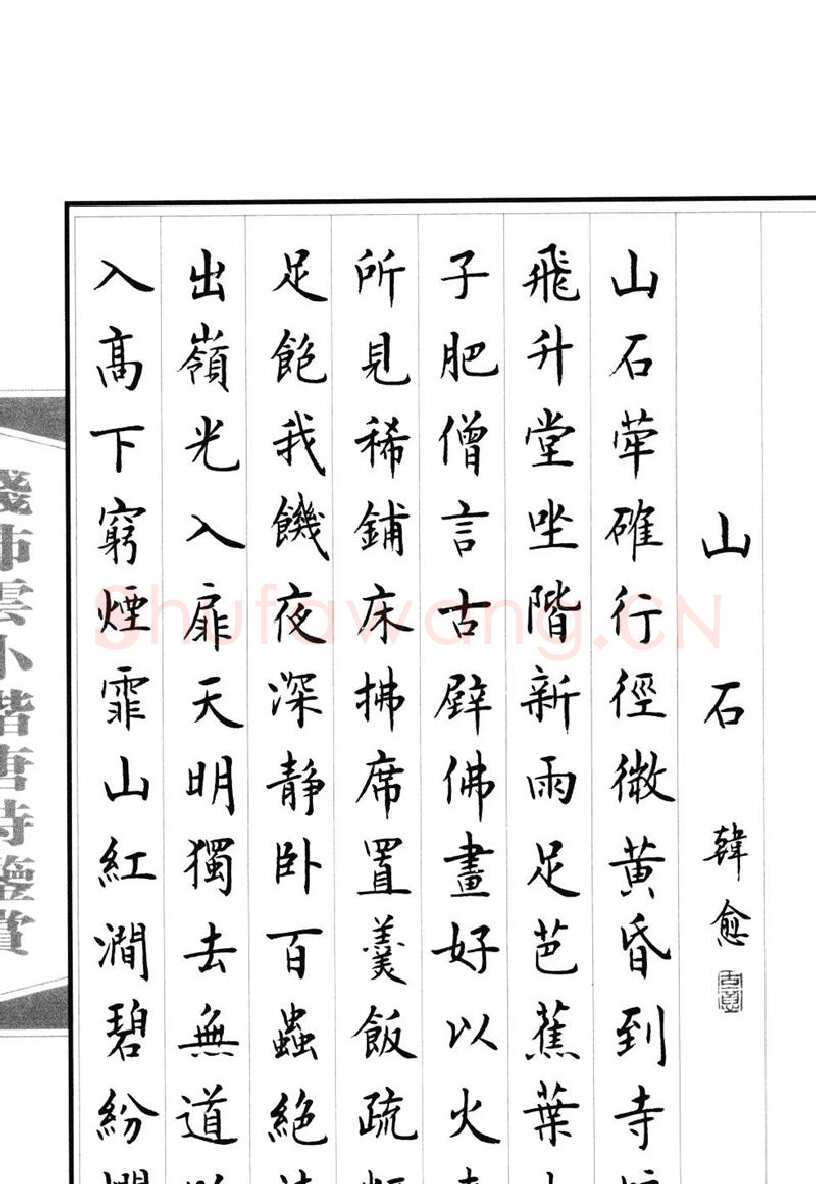 山石
韓愈
山石犖确行徑微黃昏到寺
飛升堂坐階新雨足芭蕉葉
子肥僧言古壁佛畫好以火
所見稀鋪床拂席置羹飯疏
足飽我饑夜深靜臥百蟲絕
出嶺光入扉天明獨去無道
入高下窮煙霏山紅澗碧紛
雲小楷唐詩鑒賞
Shufawang.CN